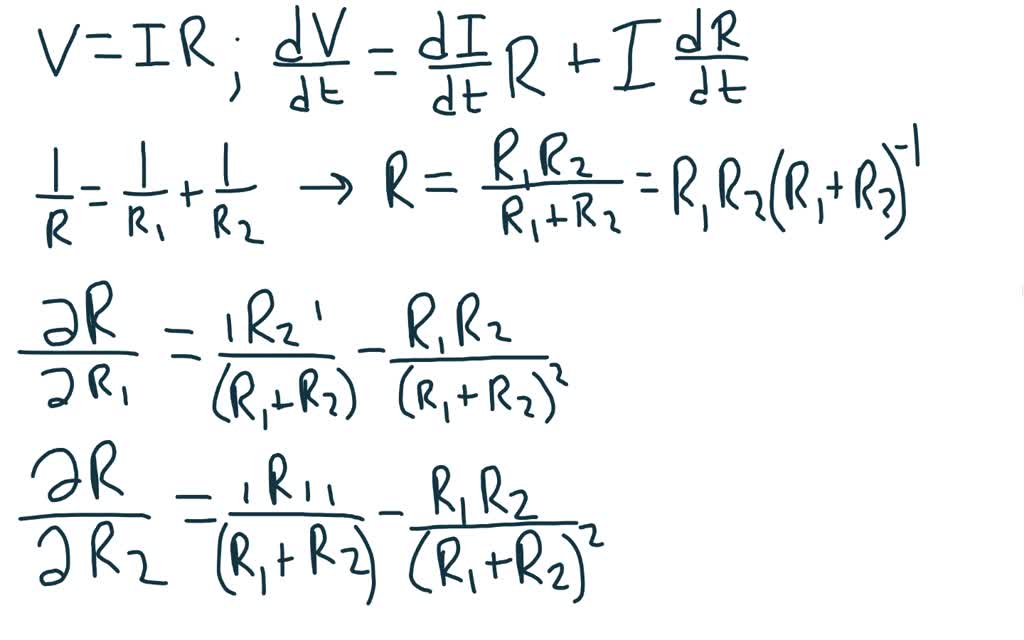 V = IR ; dV/dt = dI/dt R + I dR/dt
1/R = 1/R₁ + 1/R₂ → R = R₁R₂/R₁+R₂ = R₁R₂(R₁+R₂)⁻¹
∂R/∂R₁ = ıR₂ı/(R₁+R₂) - R₁R₂/(R₁+R₂)²
∂R/∂R₂ = ıR₁ı/(R₁+R₂) - R₁R₂/(R₁+R₂)²